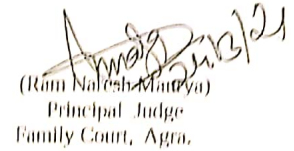 (Ram Naresh Maurya)
Principal Judge
Family Court, Agra.